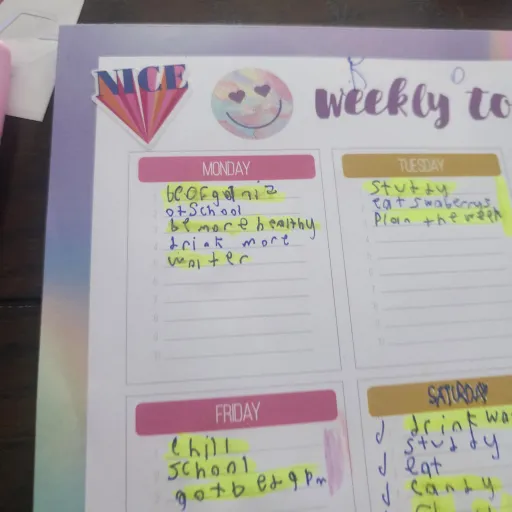 NICE
weekly to
MONDAY
be organiz
otschool
be more healthy
drink more
waiter
TUESDAY
studdy
eat swaberrys
plan the week
FRIDAY
chill
school
SATURDAY
drink wa
studdy
eat
candy